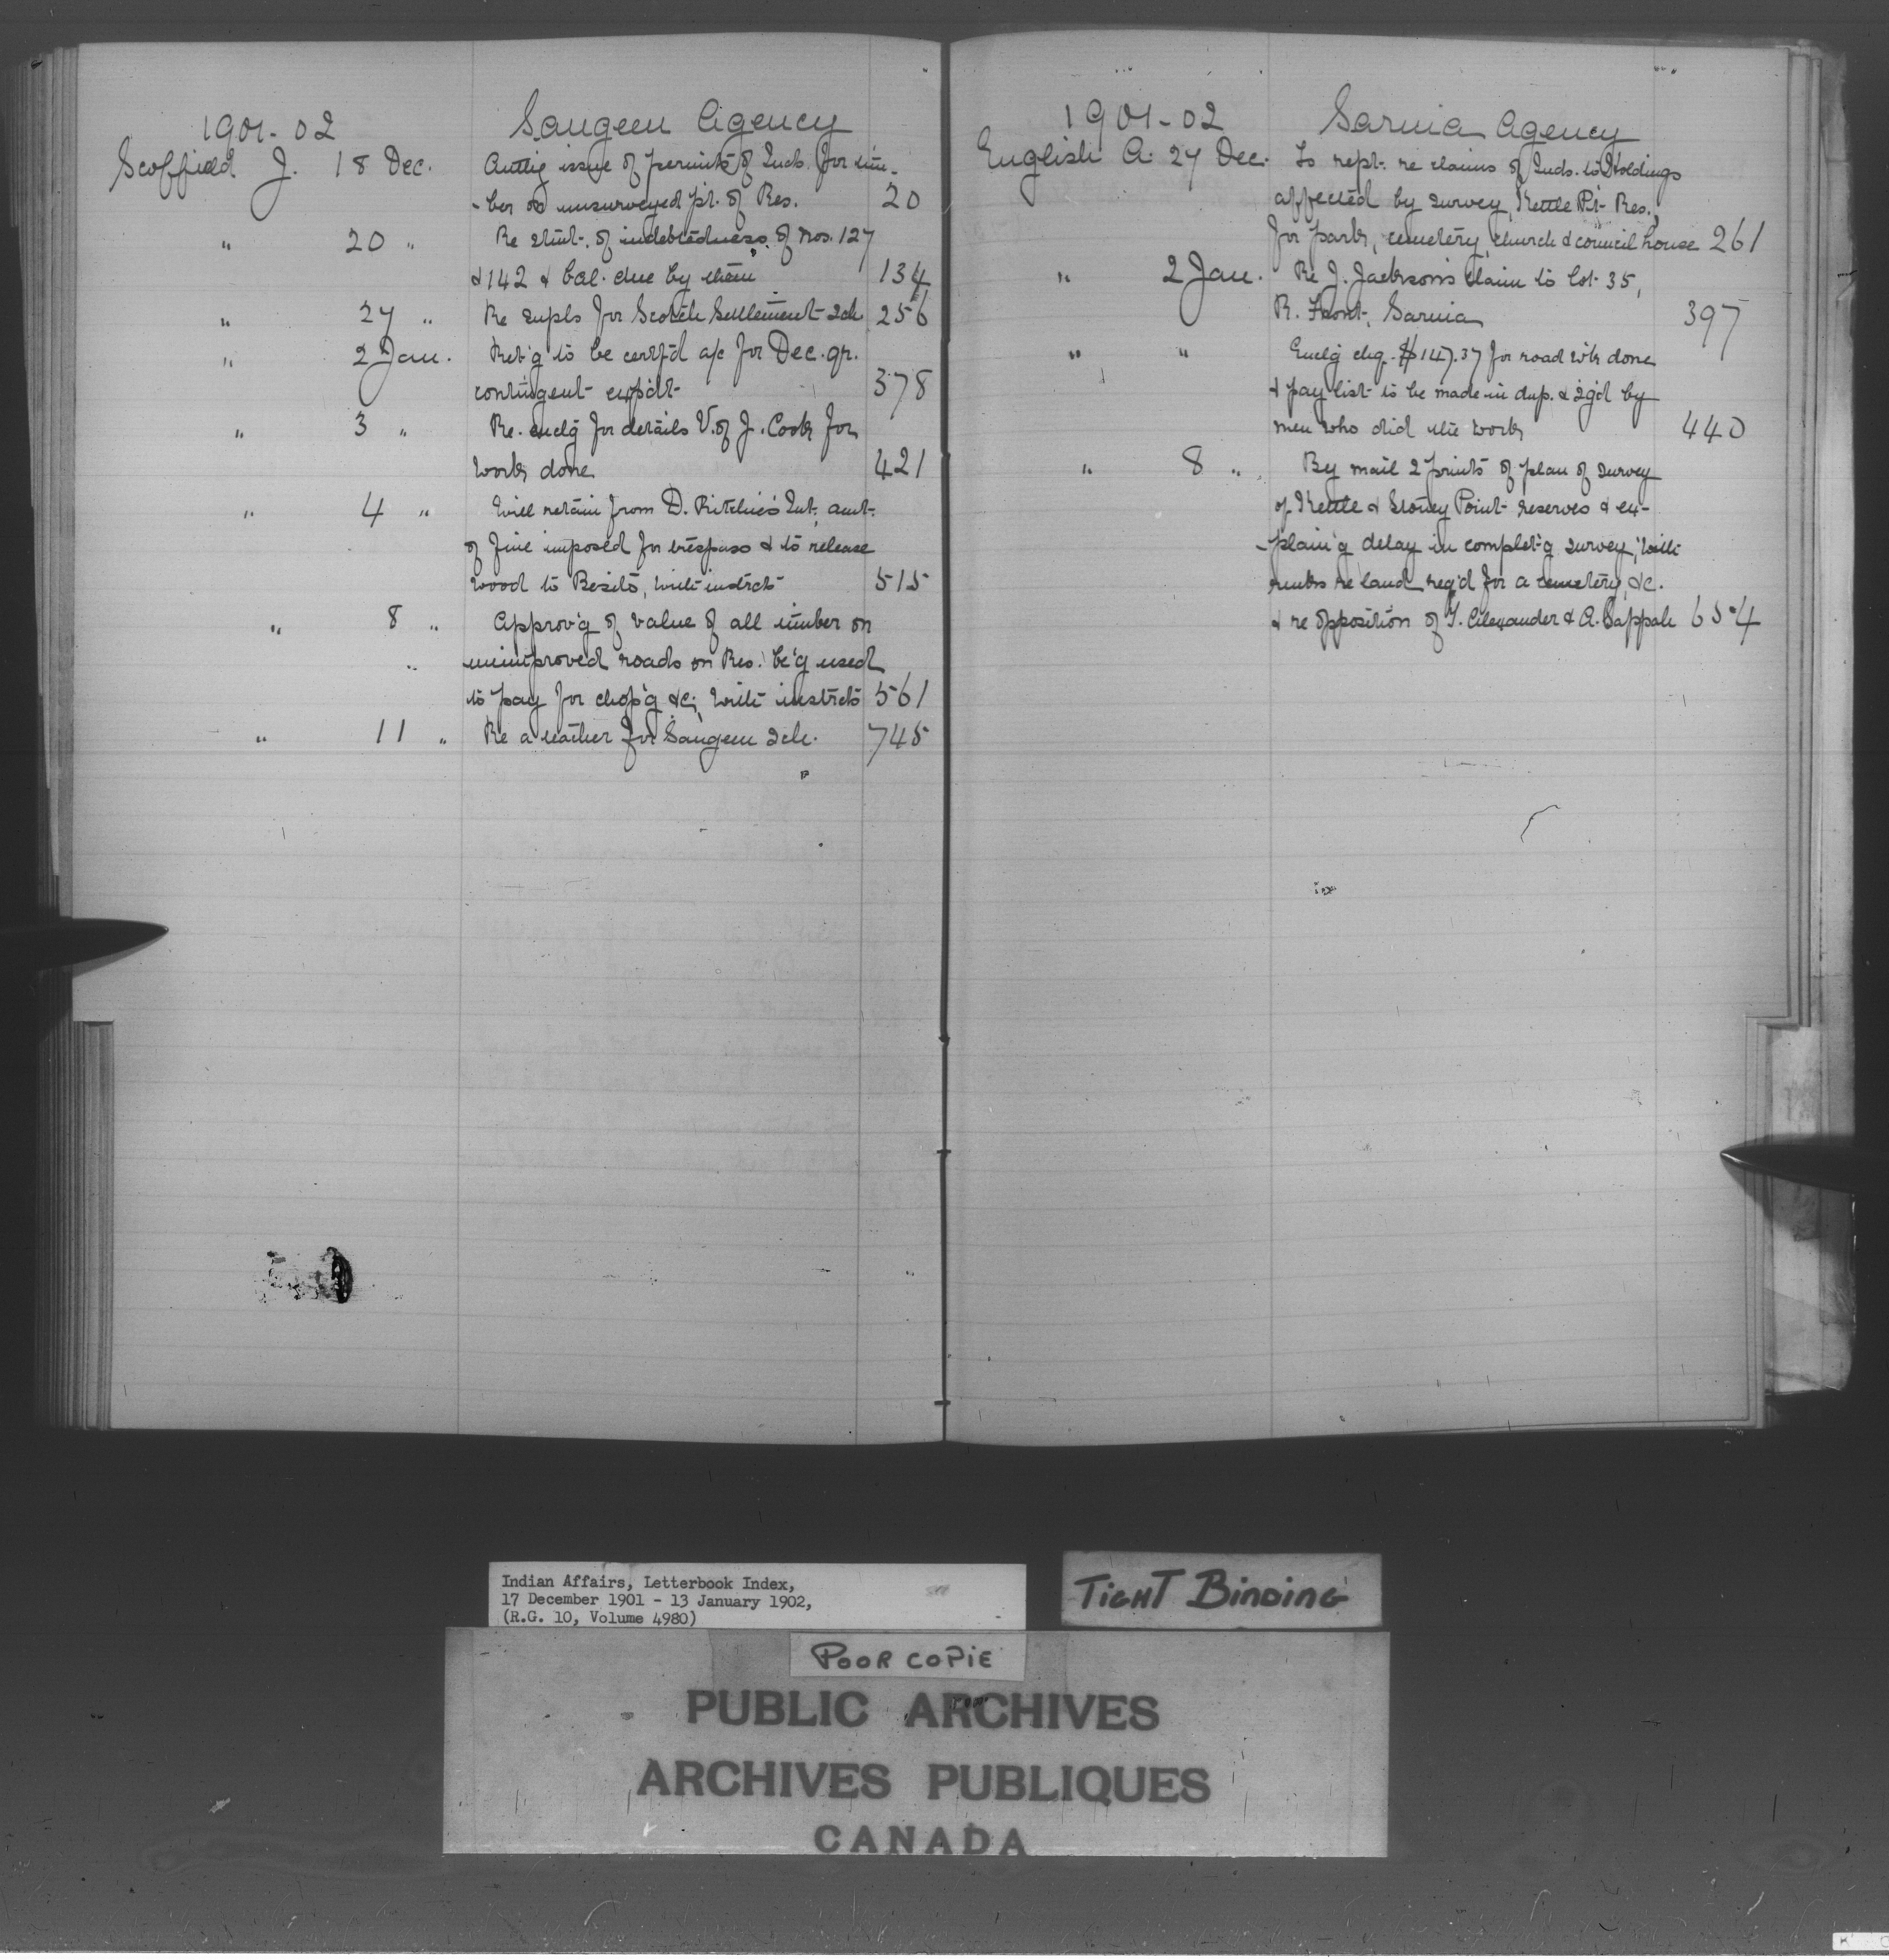 1901-02 Saugeen Agency
Scoffield J. 18 Dec. Auth'g issue of permits of Inds. for tim-
-ber on unsurveyed pt. of Res. 20
" 20 " Re stmt. of indebtedness of Nos. 127
& 142 & bal. due by them 134
" 27 " Re supls for Scotch Settlement Sch 256
" 2 Jan. Ret'g to be certf'd a/c for Dec. qr.
contingent expdt 378
" 3 " Re. enclg for details V. of J. Cook for
work done 421
" 4 " Will retain from D. Ritchie's Int. amt.
of fine imposed for trespass & to release
wood to Besito, with instrcts 515
" 8 " Approv'g of value of all timber on
" unimproved roads on Res. be'g used
to pay for chop'g &c; with instrcts 561
" 11 " Re a teacher for Saugeen Sch. 745
1901-02 Sarnia Agency
English A. 27 Dec. To rept. re claims of Inds. to Holdings
affected by survey, Kettle Pt. Res.,
for park, cemetery, church & council house 261
" 2 Jan. Re J. Jackson's claim to lot 35,
R. Front, Sarnia 397
" " Enclg chq. $147.37 for road wk done
& pay list to be made in dup. & sg'd by
men who did the work 440
" 8 " By mail 2 prints of plan of survey
of Kettle & Stoney Point reserves & ex-
-plain'g delay in complet'g survey, with
rmks re land req'd for a cemetery, &c.
& re opposition of T. Alexander & A. Sappah 654
Indian Affairs, Letterbook Index,
17 December 1901 - 13 January 1902,
(R.G. 10, Volume 4980)
TIGHT BINDING
POOR COPIE
PUBLIC ARCHIVES
ARCHIVES PUBLIQUES
CANADA